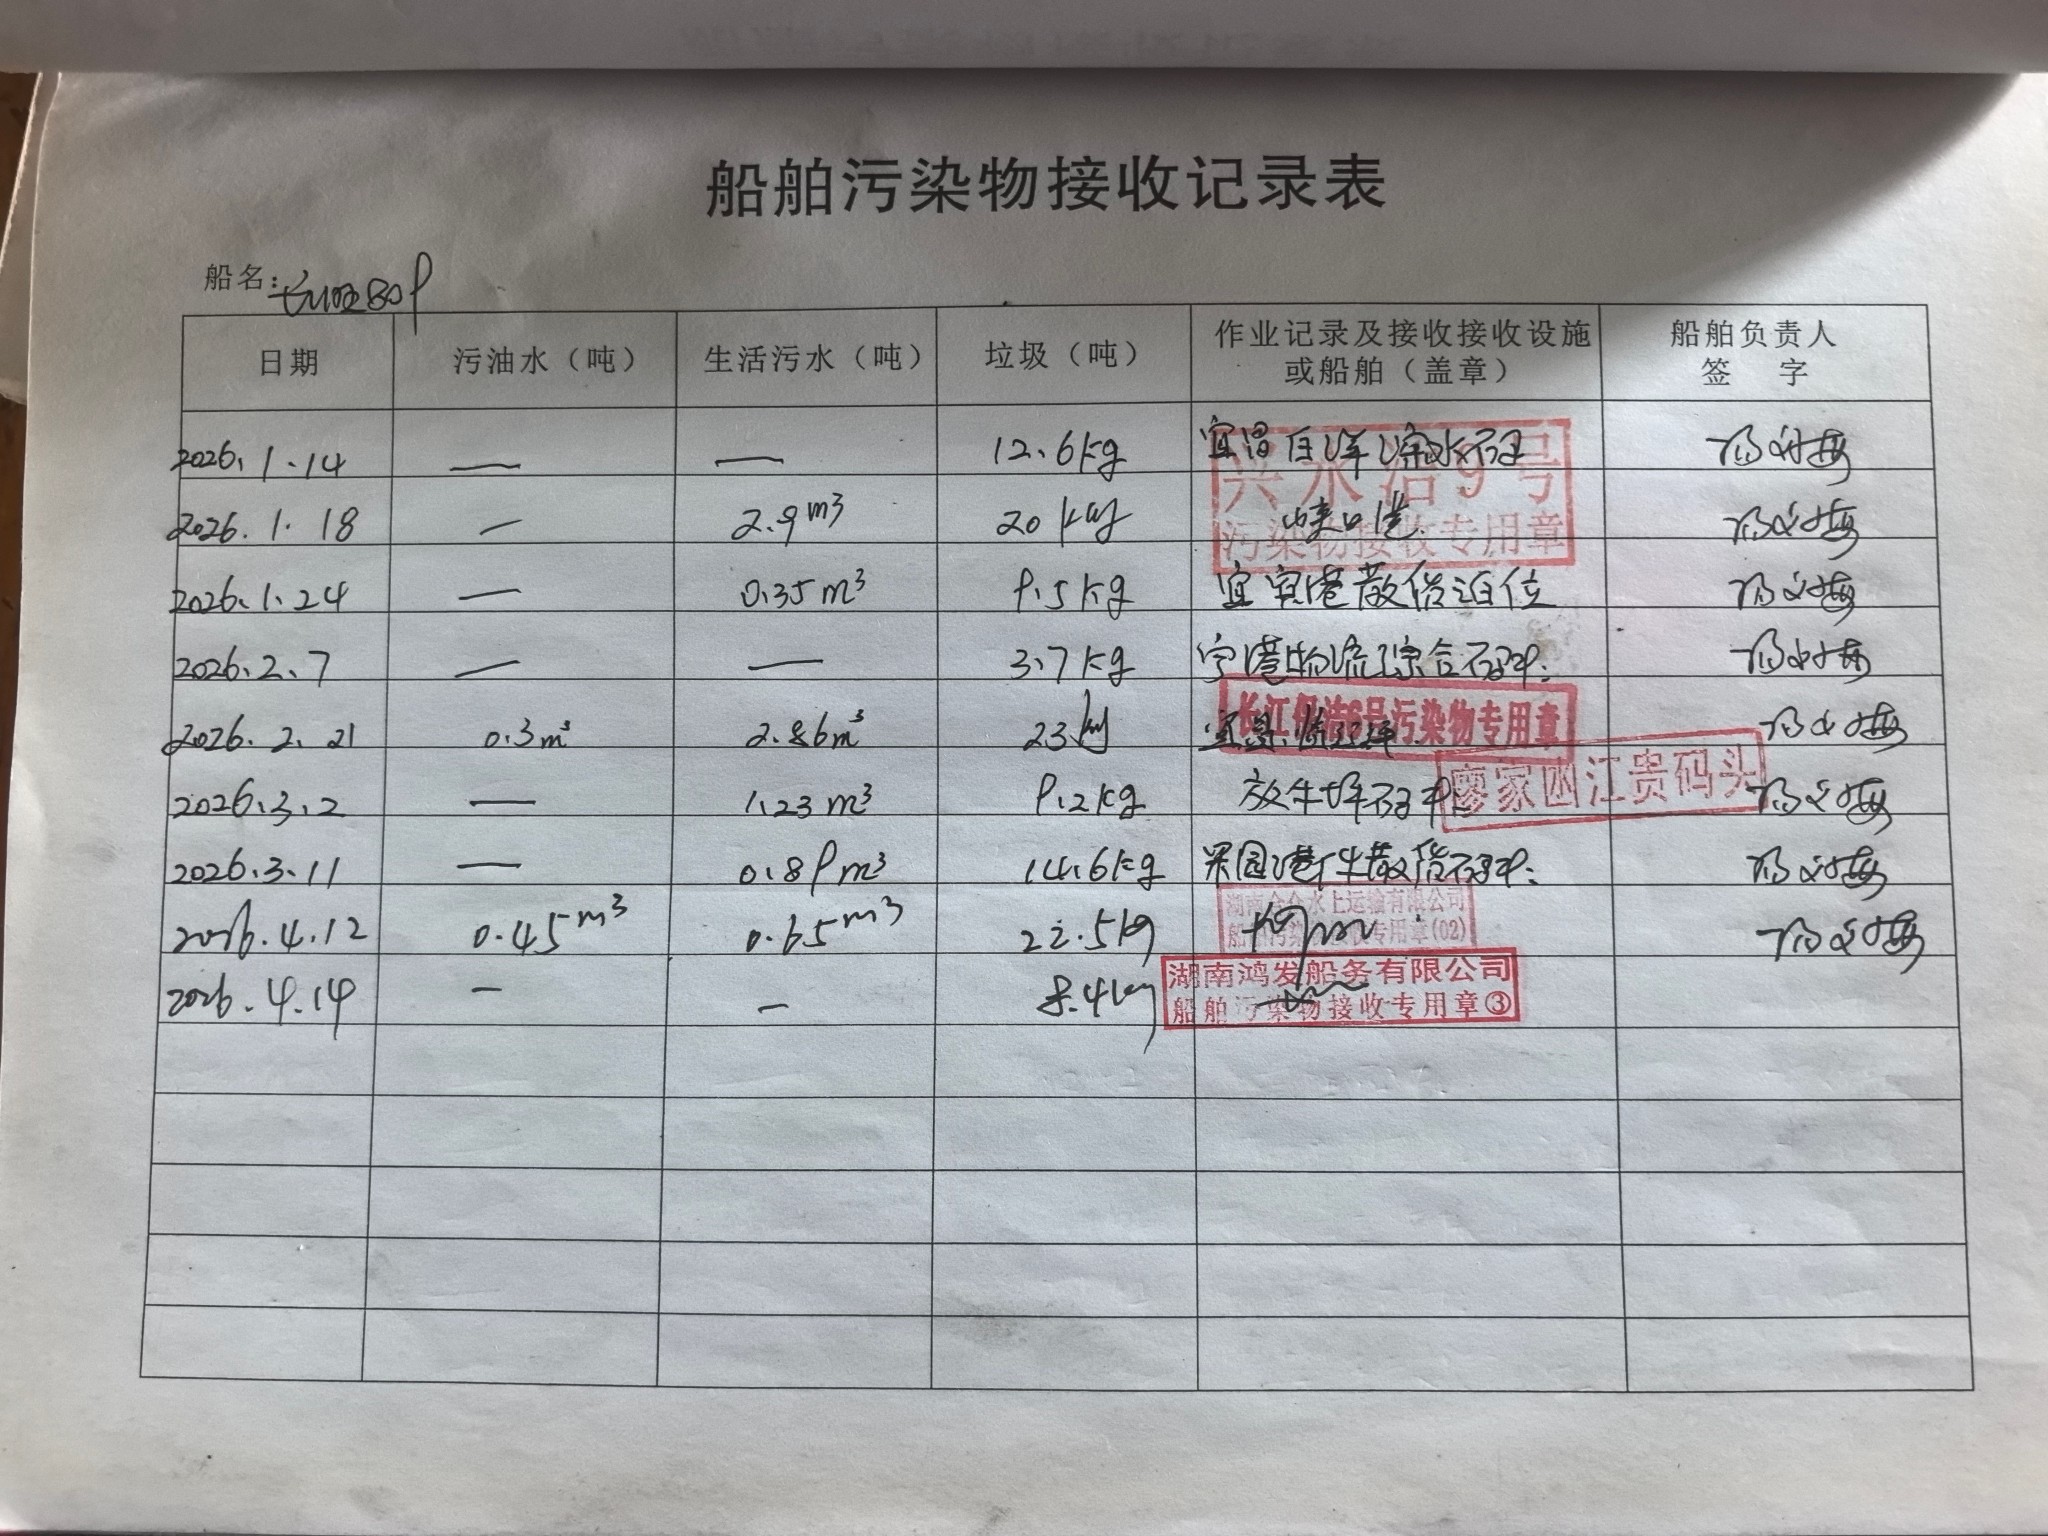 船舶污染物接收记录表
船名: 809
日期 污油水（吨） 生活污水（吨） 垃圾（吨） 作业记录及接收接收设施或船舶（盖章） 船舶负责人签 字
2026.1.14 — — 12.6kg 宜昌白洋
兴水洁9号
污染物接收专用章
2026.1.18 — 2.9m³ 20kg 峡口港
2026.1.24 — 0.35m³ 9.5kg 宜宾港散货泊位
2026.2.7 — — 3.7kg 宁港物流综合码头
2026.2.21 0.3m³ 2.86m³ 23kg 宜昌
长江 洁6号污染物专用章
2026.3.2 — 1.23m³ 9.2kg 放牛坪码头
廖家凼江贵码头
2026.3.11 — 0.89m³ 14.6kg 果园港件散货码头
2026.4.12 0.45m³ 0.65m³ 22.5kg
湖南众水上运输有限公司
船舶污染物接收专用章(02)
2026.4.14 — — 8.4kg
湖南鸿发船务有限公司
船舶污染物接收专用章③